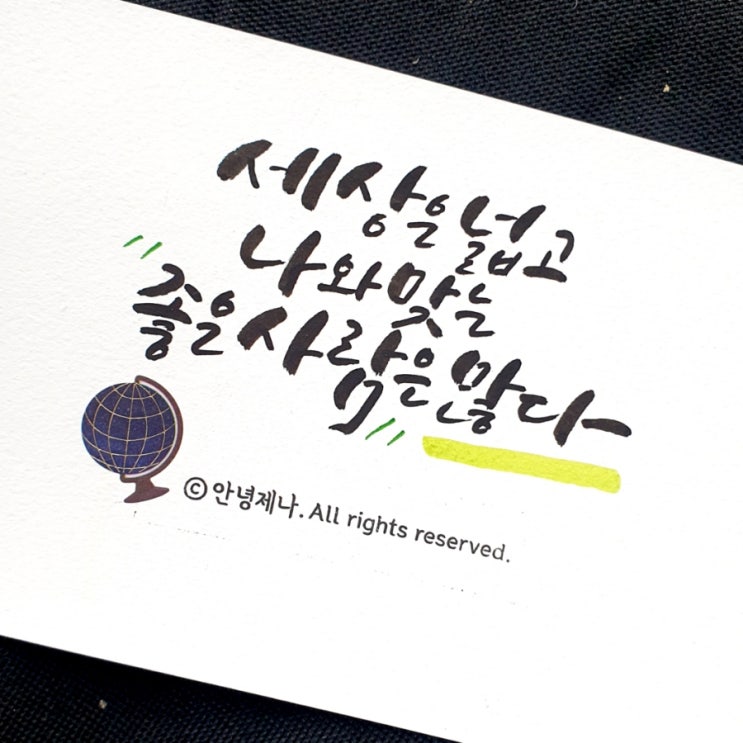 "세상은 넓고
나와 맞는
좋은 사람은 많다"
© 안녕제나. All rights reserved.